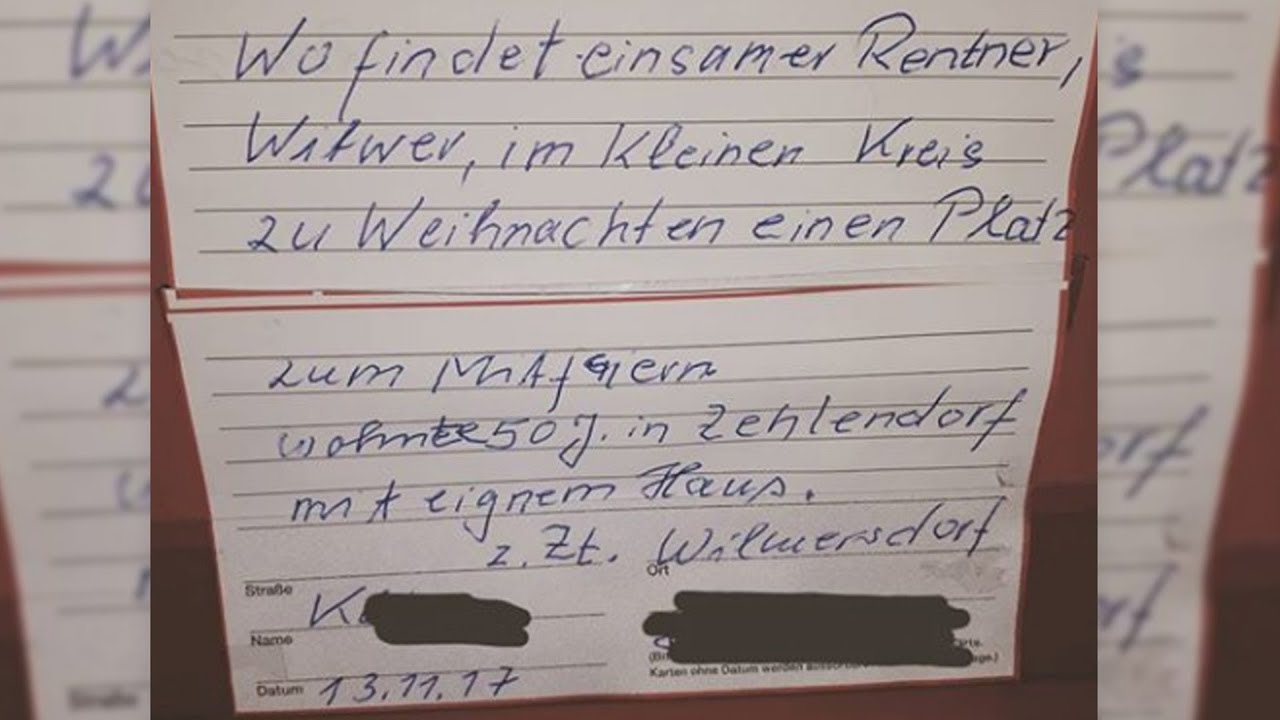 Wo findet einsamer Rentner,
Witwer, im kleinen Kreis
zu Weihnachten einen Platz
zum Mitfeiern
wohnte 50 J. in Zehlendorf
mit eignem Haus.
z. Zt. Wilmersdorf
Straße
Ort
K
Name
Karten ohne Datum werden
Datum 13.11.17